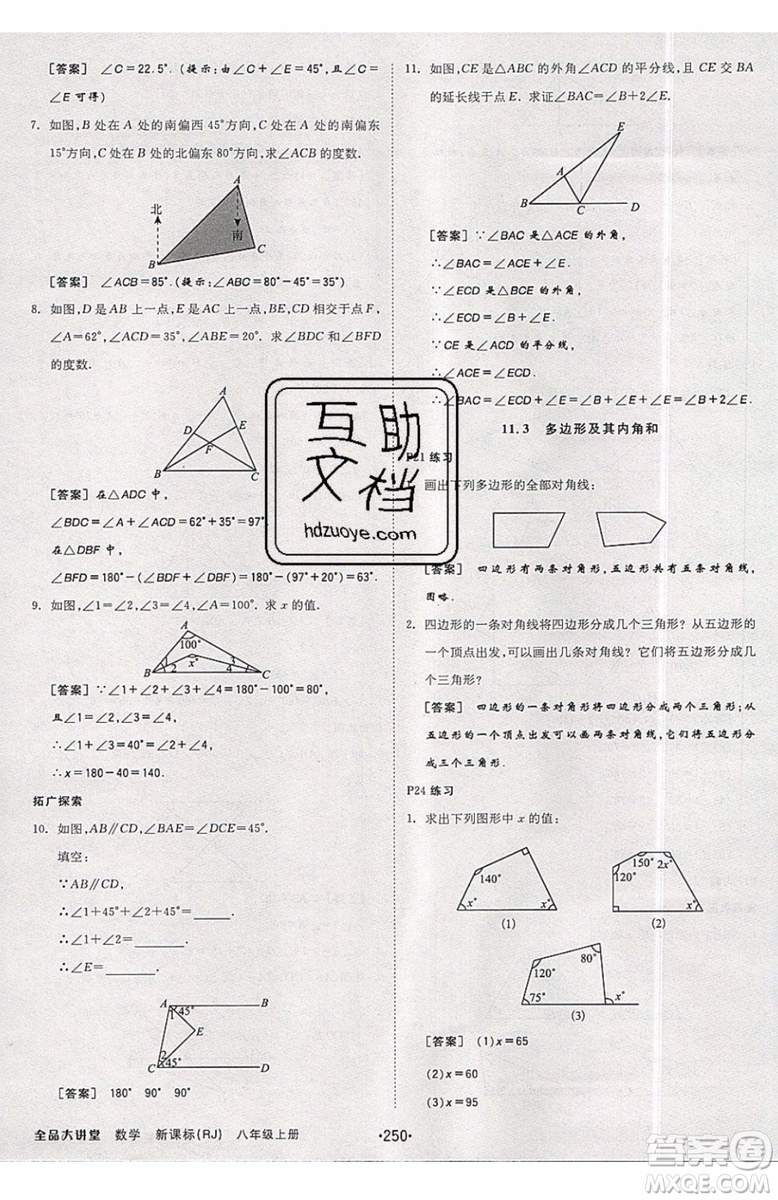 [答案] ∠C=22.5°. (提示:由∠C+∠E=45°,且∠C=
∠E可得)
7. 如图,B处在A处的南偏西45°方向,C处在A处的南偏东
15°方向,C处在B处的北偏东80°方向,求∠ACB的度数.
A
北
南
B
C
[答案] ∠ACB=85°. (提示:∠ABC=80°-45°=35°)
8. 如图,D是AB上一点,E是AC上一点,BE,CD相交于点F,
∠A=62°,∠ACD=35°,∠ABE=20°. 求∠BDC和∠BFD
的度数.
A
D
E
F
B
C
[答案] 在△ADC中,
∠BDC=∠A+∠ACD=62°+35°=97°.
在△DBF中,
∠BFD=180°-(∠BDF+∠DBF)=180-(97+20)=63°.
9. 如图,∠1=∠2,∠3=∠4,∠A=100°. 求x的值.
A
100°
x°
1
2
3
4
B
C
[答案] ∵∠1+∠2+∠3+∠4+∠A=180°,
∴∠1+∠2+∠3+∠4=80°.
∵∠1=∠2,∠3=∠4,
∴∠2+∠4=40°.
∴x=180-40=140.
拓广探索
10. 如图,AB∥CD,∠BAE=∠DCE=45°.
填空:
∵AB∥CD,
∴∠1+45°+∠2+45°=____.
∴∠1+∠2=____.
∴∠E=____.
A
B
1
45°
E
2
45°
C
D
[答案] 180° 90° 90°
全品大讲堂 数学 新课标(RJ) 八年级上册
·250·
11. 如图,CE是△ABC的外角∠ACD的平分线,且CE交BA
的延长线于点E. 求证∠BAC=∠B+2∠E.
E
A
B
C
D
[答案] ∵∠BAC是△ACE的外角,
∴∠BAC=∠ACE+∠E.
∵∠ECD是△BCE的外角,
∴∠ECD=∠B+∠E.
∵CE是∠ACD的平分线,
∴∠ACE=∠ECD.
∴∠BAC=∠B+∠E+∠E=∠B+2∠E.
11.3 多边形及其内角和
P21 练习
画出下列多边形的全部对角线:
[答案] 四边形有两条对角线,五边形共有五条对角线,
图略.
2. 四边形的一条对角线将四边形分成几个三角形?从五边形
的一个顶点出发,可以画出几条对角线?它们将五边形分成几
个三角形?
[答案] 四边形的一条对角形将四边形分成两个三角形;从
五边形的一个顶点出发可以画两条对角线,它们将五边形分
成三个三角形.
P24 练习
1. 求出下列图形中x的值:
140°
x°
x°
(1)
150°
2x°
120°
x°
(2)
80°
120°
75°
x°
(3)
[答案] (1)x=65
(2)x=60
(3)x=95
互助
文档
hdzuoye.com
答案圈
MXQE.COM